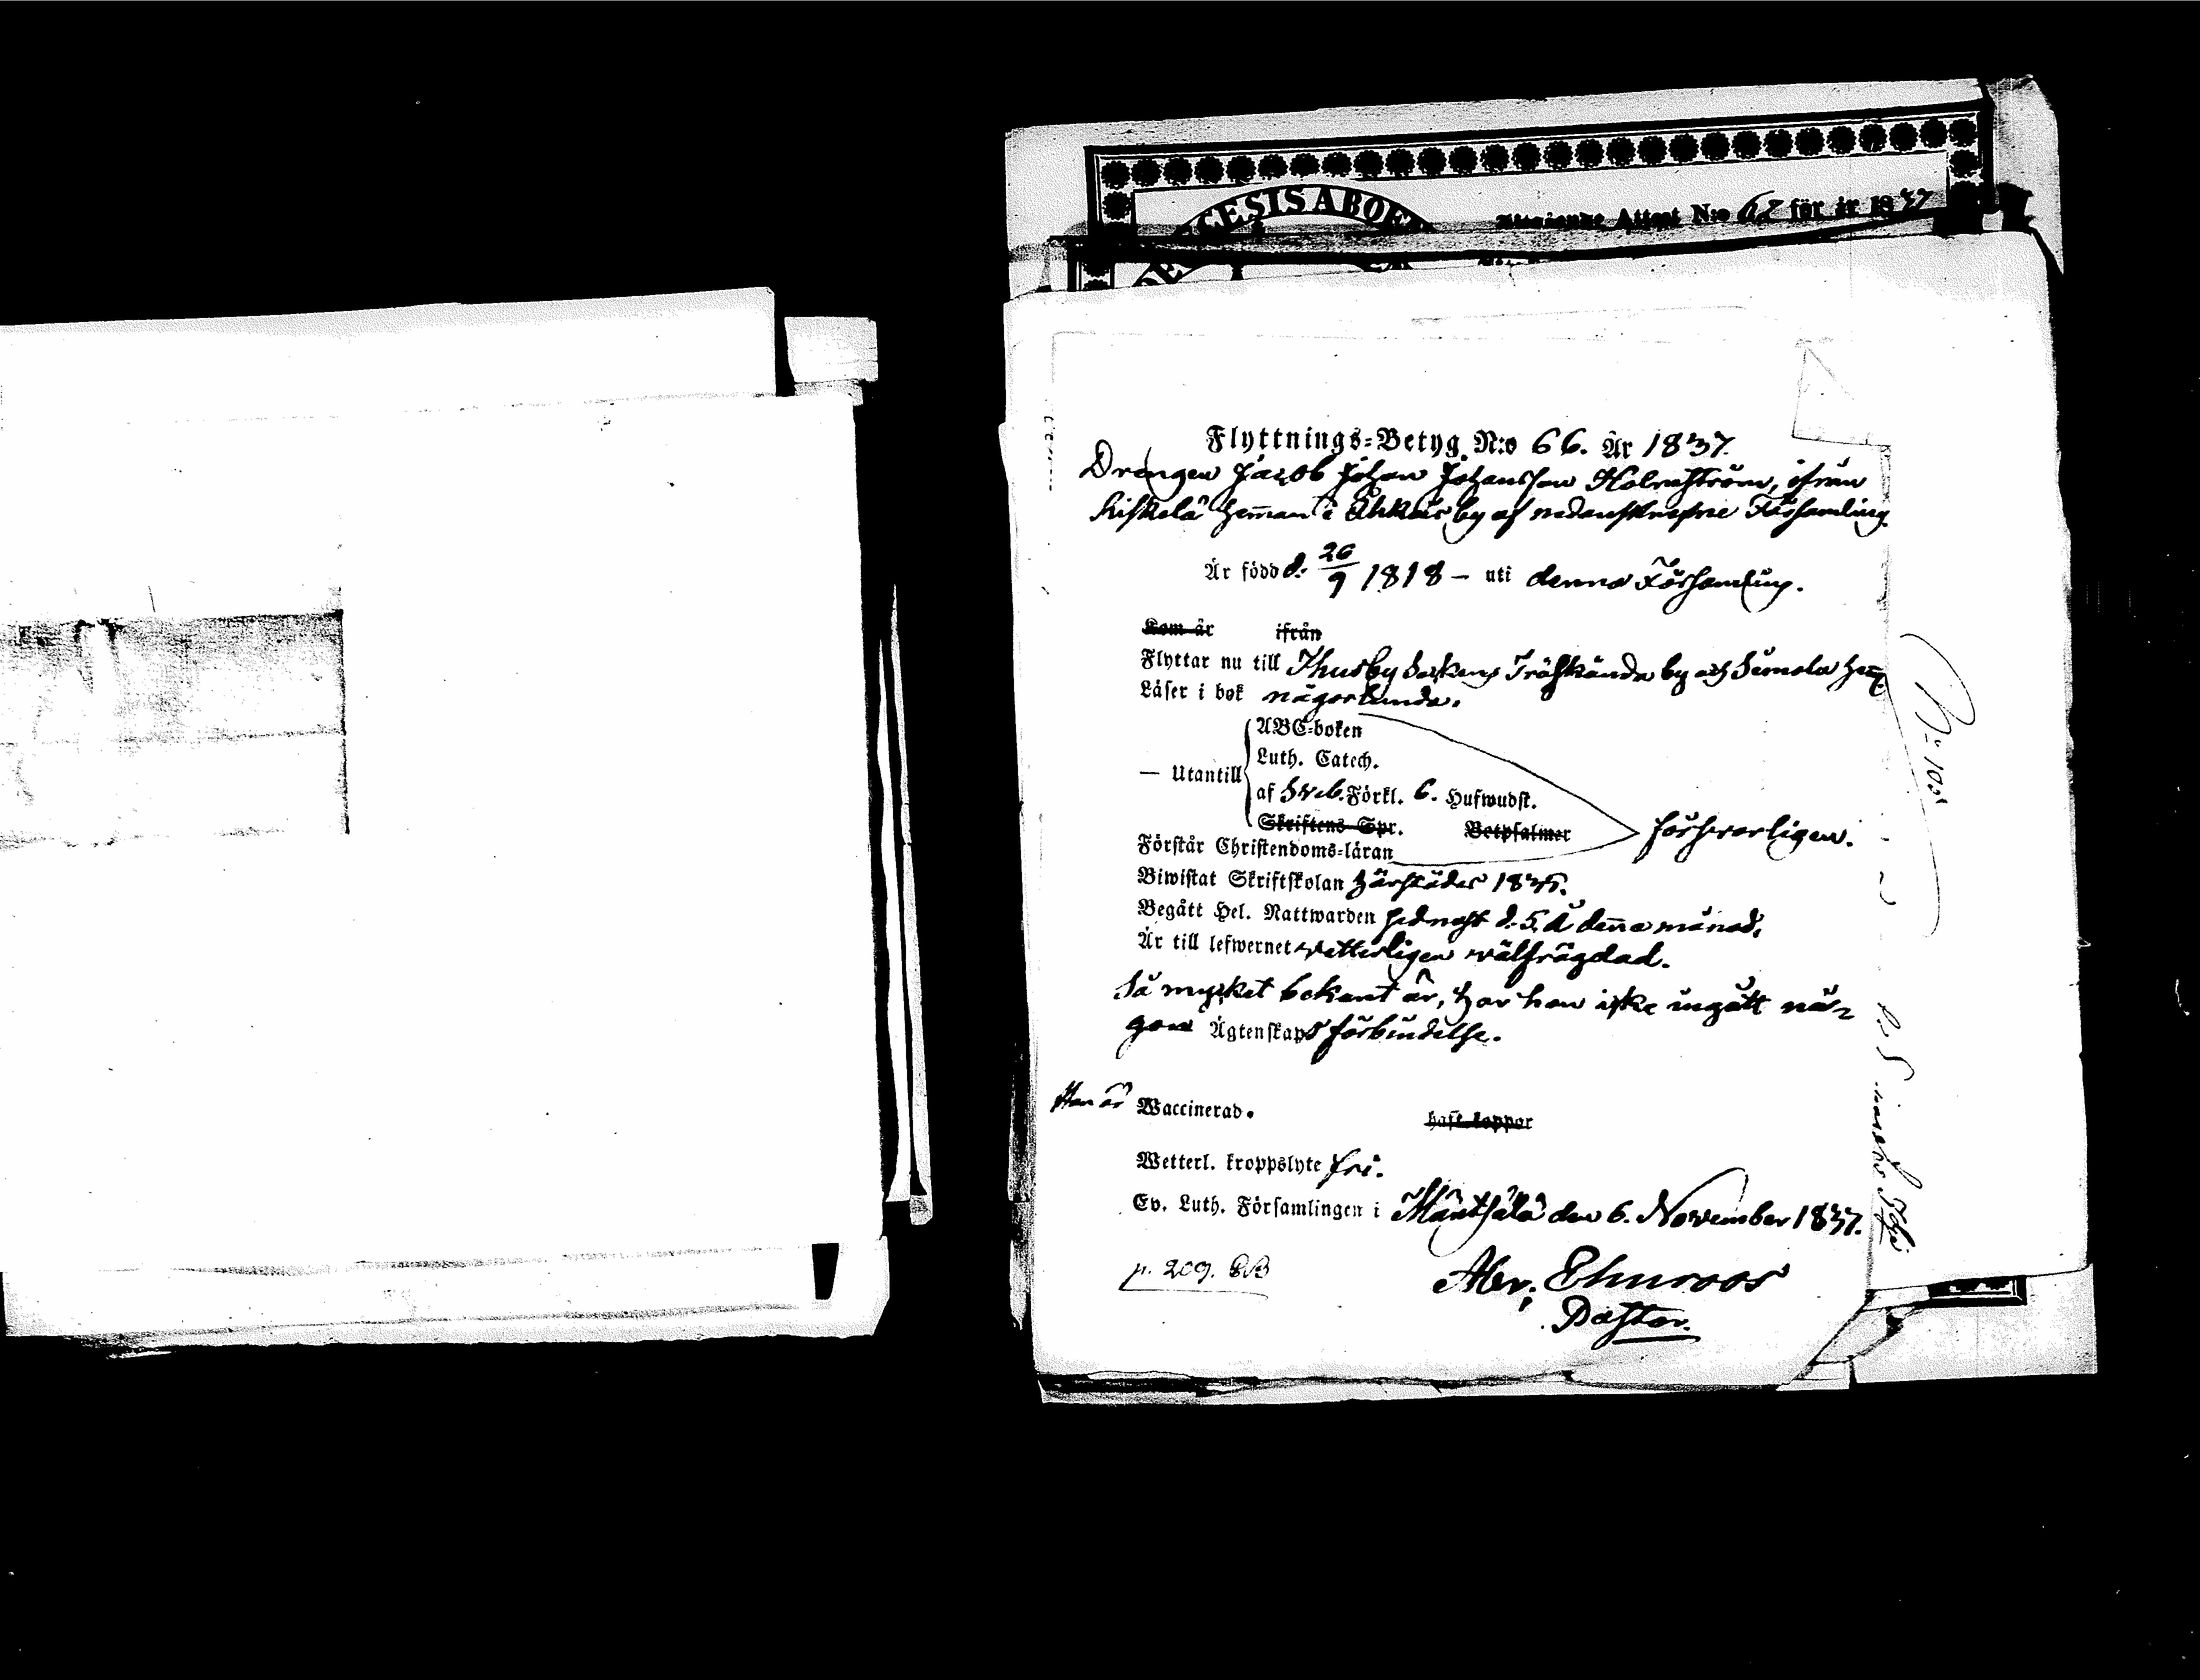 CESIS ABOE
Attest N:o 62 för år 1837
Flyttnings-Betyg N:o 66. År 1837.
Drängen Jacob Johan Johansson Holmström, ifrån
hemman i by af nedanskrefne Församling
Är född d. 26/9 1818 – uti denna Församling.
Kom år ifrån
Flyttar nu till Thusby Sockens Träskända by och hem̄.
Läser i bok någorlunda.
ABC-boken
Luth. Catech.
— Utantill
af Sveb. Förkl. 6. Hufwudst.
Skriftens Spr. Betpsalmer
försvarligen.
Förstår Christendoms-läran
Biwistat Skriftskolan härstädes 1835.
Begått Hel. Nattwarden sednast d. 5 denna månad.
Är till lefwernet vetterligen välfrägdad.
Så mycket bekant är, har han icke ingått nå-
gon Ägtenskaps förbindelse.
Han är Waccinerad. haft koppor
Wetterl. kroppslyte fri.
Ev. Luth. Församlingen i Mäntsälä den 6. November 1837.
p. 209. BB
Abr. Elmroos
Pastor.
N:o 105